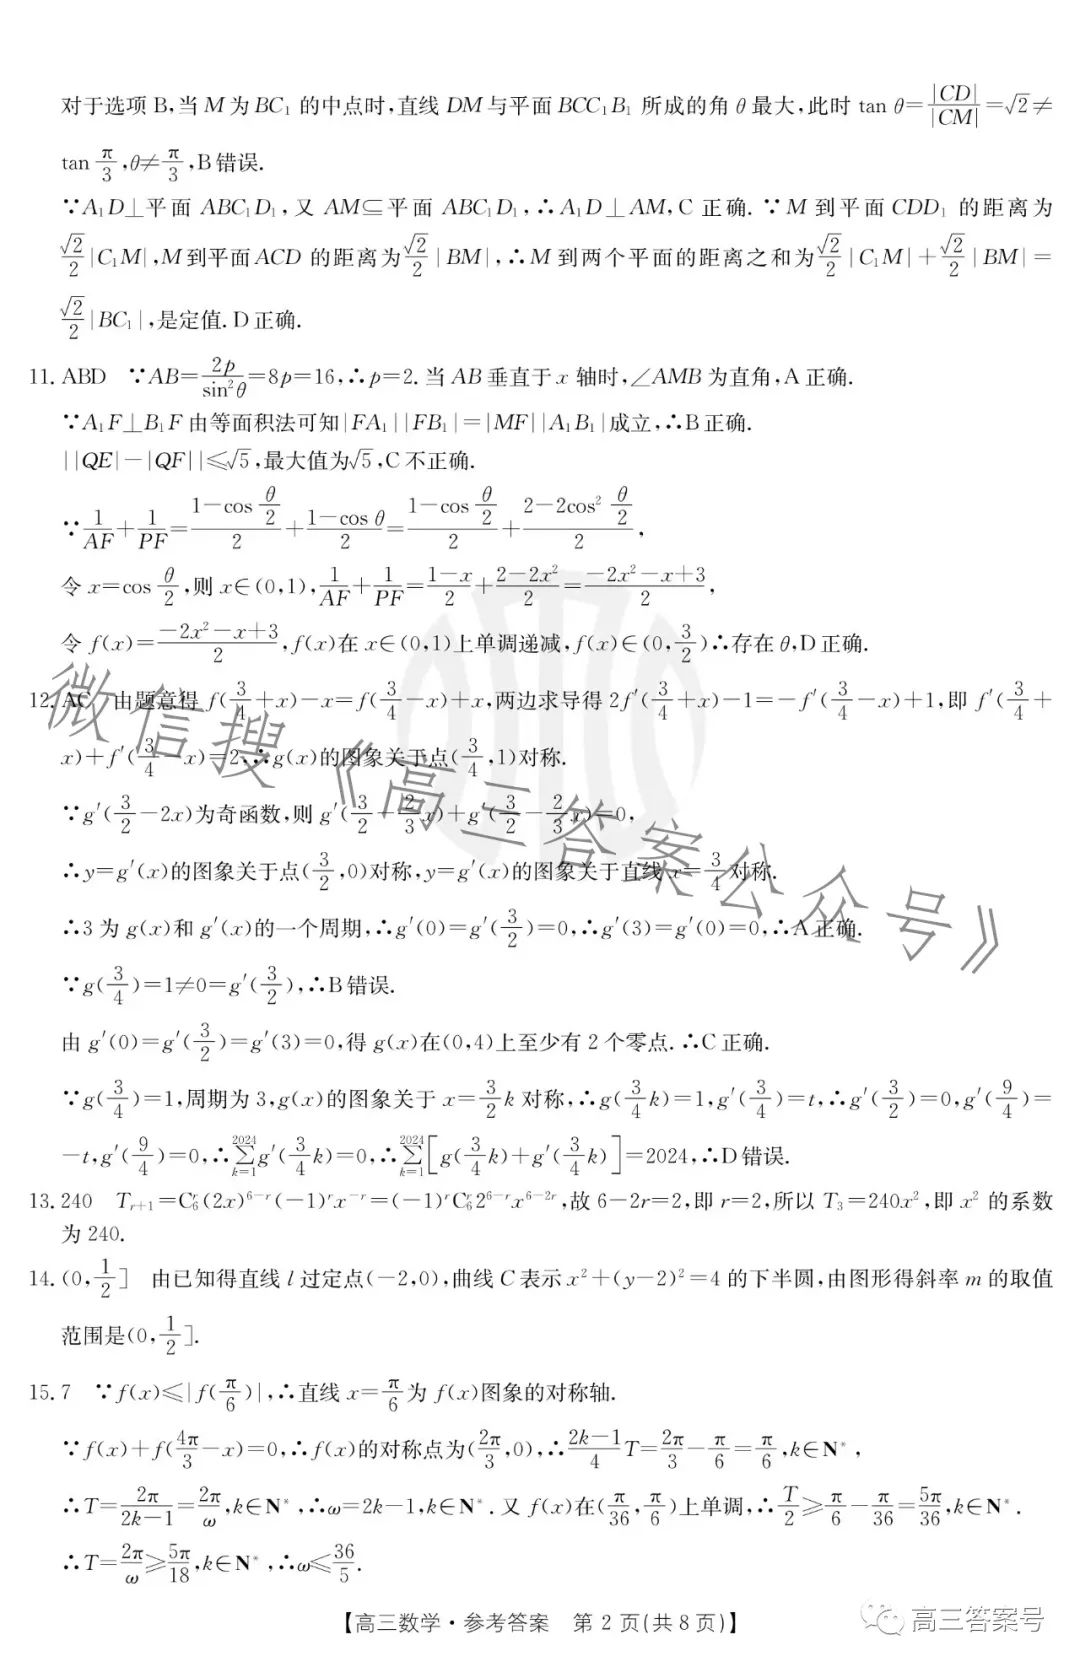 对于选项 B,当 M 为 BC₁ 的中点时,直线 DM 与平面 BCC₁B₁ 所成的角 θ 最大,此时 tan θ=|CD|/|CM|=√2≠
tan π/3,θ≠π/3,B 错误.
∵A₁D⊥平面 ABC₁D₁,又 AM⊆平面 ABC₁D₁,∴A₁D⊥AM,C 正确. ∵M 到平面 CDD₁ 的距离为
√2/2|C₁M|,M 到平面 ACD 的距离为√2/2|BM|,∴M 到两个平面的距离之和为√2/2|C₁M|+√2/2|BM|=
√2/2|BC₁|,是定值. D 正确.
11. ABD ∵AB=2p/sin²θ=8p=16,∴p=2. 当 AB 垂直于 x 轴时,∠AMB 为直角,A 正确.
∵A₁F⊥B₁F 由等面积法可知|FA₁||FB₁|=|MF||A₁B₁|成立,∴B 正确.
||QE|-|QF||≤√5,最大值为√5,C 不正确.
∵1/AF+1/PF=(1-cos θ/2)/2+(1-cos θ)/2=(1-cos θ/2)/2+(2-2cos² θ/2)/2,
令 x=cos θ/2,则 x∈(0,1),1/AF+1/PF=(1-x)/2+(2-2x²)/2=(-2x²-x+3)/2,
令 f(x)=(-2x²-x+3)/2,f(x)在 x∈(0,1)上单调递减,f(x)∈(0,3/2)∴存在 θ,D 正确.
12. AC 由题意得 f(3/4+x)-x=f(3/4-x)+x,两边求导得 2f′(3/4+x)-1=-f′(3/4-x)+1,即 f′(3/4+
x)+f′(3/4-x)=2∴g(x)的图象关于点(3/4,1)对称.
∵g′(3/2-2x)为奇函数,则 g′(3/2-2/3x)+g′(3/2-2/3x)=0,
∴y=g′(x)的图象关于点(3/2,0)对称,y=g′(x)的图象关于直线 x=3/4对称.
∴3 为 g(x)和 g′(x)的一个周期,∴g′(0)=g′(3/2)=0,∴g′(3)=g′(0)=0,∴A 正确.
∵g(3/4)=1≠0=g′(3/2),∴B 错误.
由 g′(0)=g′(3/2)=g′(3)=0,得 g(x)在(0,4)上至少有 2 个零点. ∴C 正确.
∵g(3/4)=1,周期为 3,g(x)的图象关于 x=3/2k 对称,∴g(3/4k)=1,g′(3/4)=t,∴g′(3/2)=0,g′(9/4)=
-t,g′(9/4)=0,∴∑_{k=1}^{2024}g′(3/4k)=0,∴∑_{k=1}^{2024}[g(3/4k)+g′(3/4k)]=2024,∴D 错误.
13. 240 Tᵣ₊₁=C₆ʳ(2x)⁶⁻ʳ(-1)ʳx⁻ʳ=(-1)ʳC₆ʳ2⁶⁻ʳx⁶⁻²ʳ,故 6-2r=2,即 r=2,所以 T₃=240x²,即 x² 的系数
为 240.
14. (0,1/2] 由已知得直线 l 过定点(-2,0),曲线 C 表示 x²+(y-2)²=4 的下半圆,由图形得斜率 m 的取值
范围是(0,1/2].
15. 7 ∵f(x)≤|f(π/6)|,∴直线 x=π/6为 f(x)图象的对称轴.
∵f(x)+f(4π/3-x)=0,∴f(x)的对称点为(2π/3,0),∴(2k-1)/4T=2π/3-π/6=π/6,k∈N*,
∴T=2π/(2k-1)=2π/ω,k∈N*,∴ω=2k-1,k∈N*. 又 f(x)在(π/36,π/6)上单调,∴T/2≥π/6-π/36=5π/36,k∈N*.
∴T=2π/ω≥5π/18,k∈N*,∴ω≤36/5.
【高三数学·参考答案 第 2 页(共 8 页)】
高三答案号
微信搜《高三答案公众号》